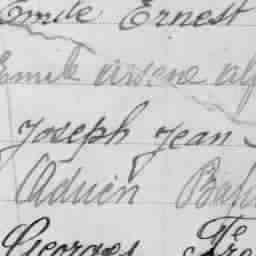 Emile Ernest
Emile arsène
Joseph Jean
Adrien
Georges